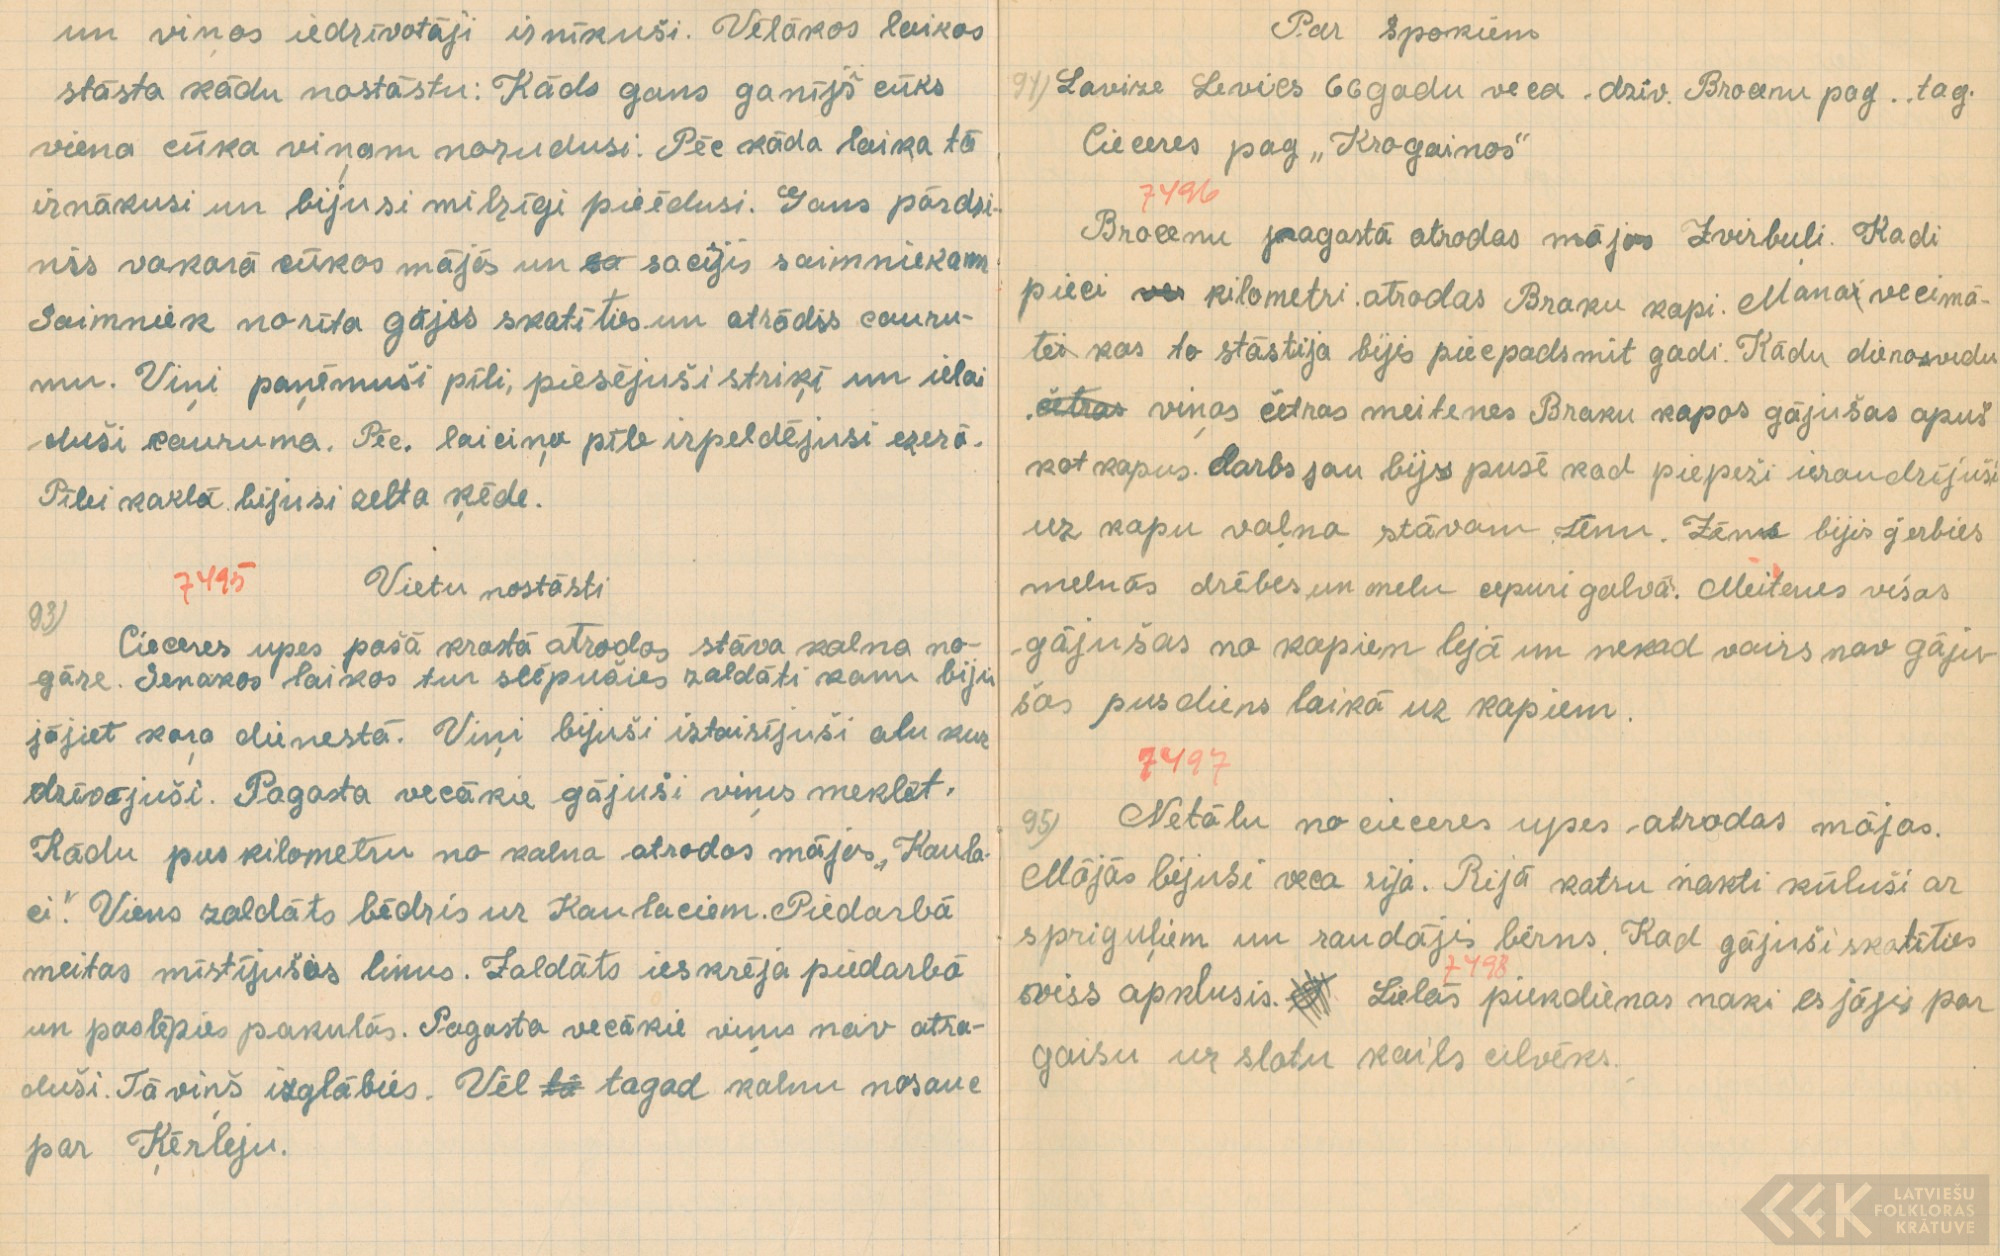 un viņos iedzīvotāji iznīkuši. Vēlākos laikos
stāsta kādu nostāstu: Kāds gans ganījis cūks
viena cūka viņam nozudusi. Pēc kāda laika tā
iznākusi un bijusi milzīgi pieēdusi. Gans pārdzi-
nis vakarā cūkas mājās un sa sacījis saimniekam
Saimniek no rīta gājis skatīties un atrādis cauru-
mu. Viņi paņēmuši pīli, piesējuši striķī un ielai
duši cauruma. Pēc. laiciņa pīle izpeldējusi ezerā.
Pīlei kaklā bijusi zelta ķēde.
7495 Vietu nostāsti
93)
Cieceres upes pašā krastā atrodas stāva kalna no-
gāze. Senakos laikos tur slēpušies zaldāti kam biju
jājiet kaŗa dienestā. Viņi bijuši iztaisījuši alu kur
dzīvojuši. Pagasta vecākie gājuši viņus meklēt.
Kādu pus kilometru no kalna atrodas mājas „Kaula-
ci". Viens zaldāts bēdzis uz Kaulaciem. Piedarbā
meitas mīstījušas linus. Zaldāts ieskrēja piedarbā
un paslēpies pakulās. Pagasta vecākie viņus nav atra-
duši. Tā viņš izglābies. Vēl tā tagad kalnu nosauc
par Ķērleju.
Par spokiem
94) Lavize Levics 66 gadu veca . dzīv. Brocenu pag.. tag.
Cieceres pag „Krogainos"
7496
Brocenu pagastā atrodas mājas Zvirbuļi. Kadi
pieci kilometri atrodas Braku kapi. Manai vecimā-
tei kas to stāstija bijis piecpadsmit gadi. Kādu dienasvidu
četras viņas četras meitenes Braku kapos gājušas apuš
kot kapus. darbs jau bijis pusē kad piepeži ieraudzījuši
uz kapu vaļņa stāvam zēnu. Zēns bijis ģerbies
melnās drēbēs un melu cepuri galvā. Meitenes visas
gājušas no kapiem lejā un nekad vairs nav gāju-
šas pusdiens laikā uz kapiem.
7497
95) Netālu no cieceres upes atrodas mājas.
Mājās bijusi veca rija. Rijā katru nakti kūluši ar
spriguļiem un raudājis bērns. Kad gājuši skatīties
viss apklusis. 7498 Lielās piekdienas naki es jājis par
gaisu uz slotu kails cilvēks.
LATVIEŠU
FOLKLORAS
KRĀTUVE